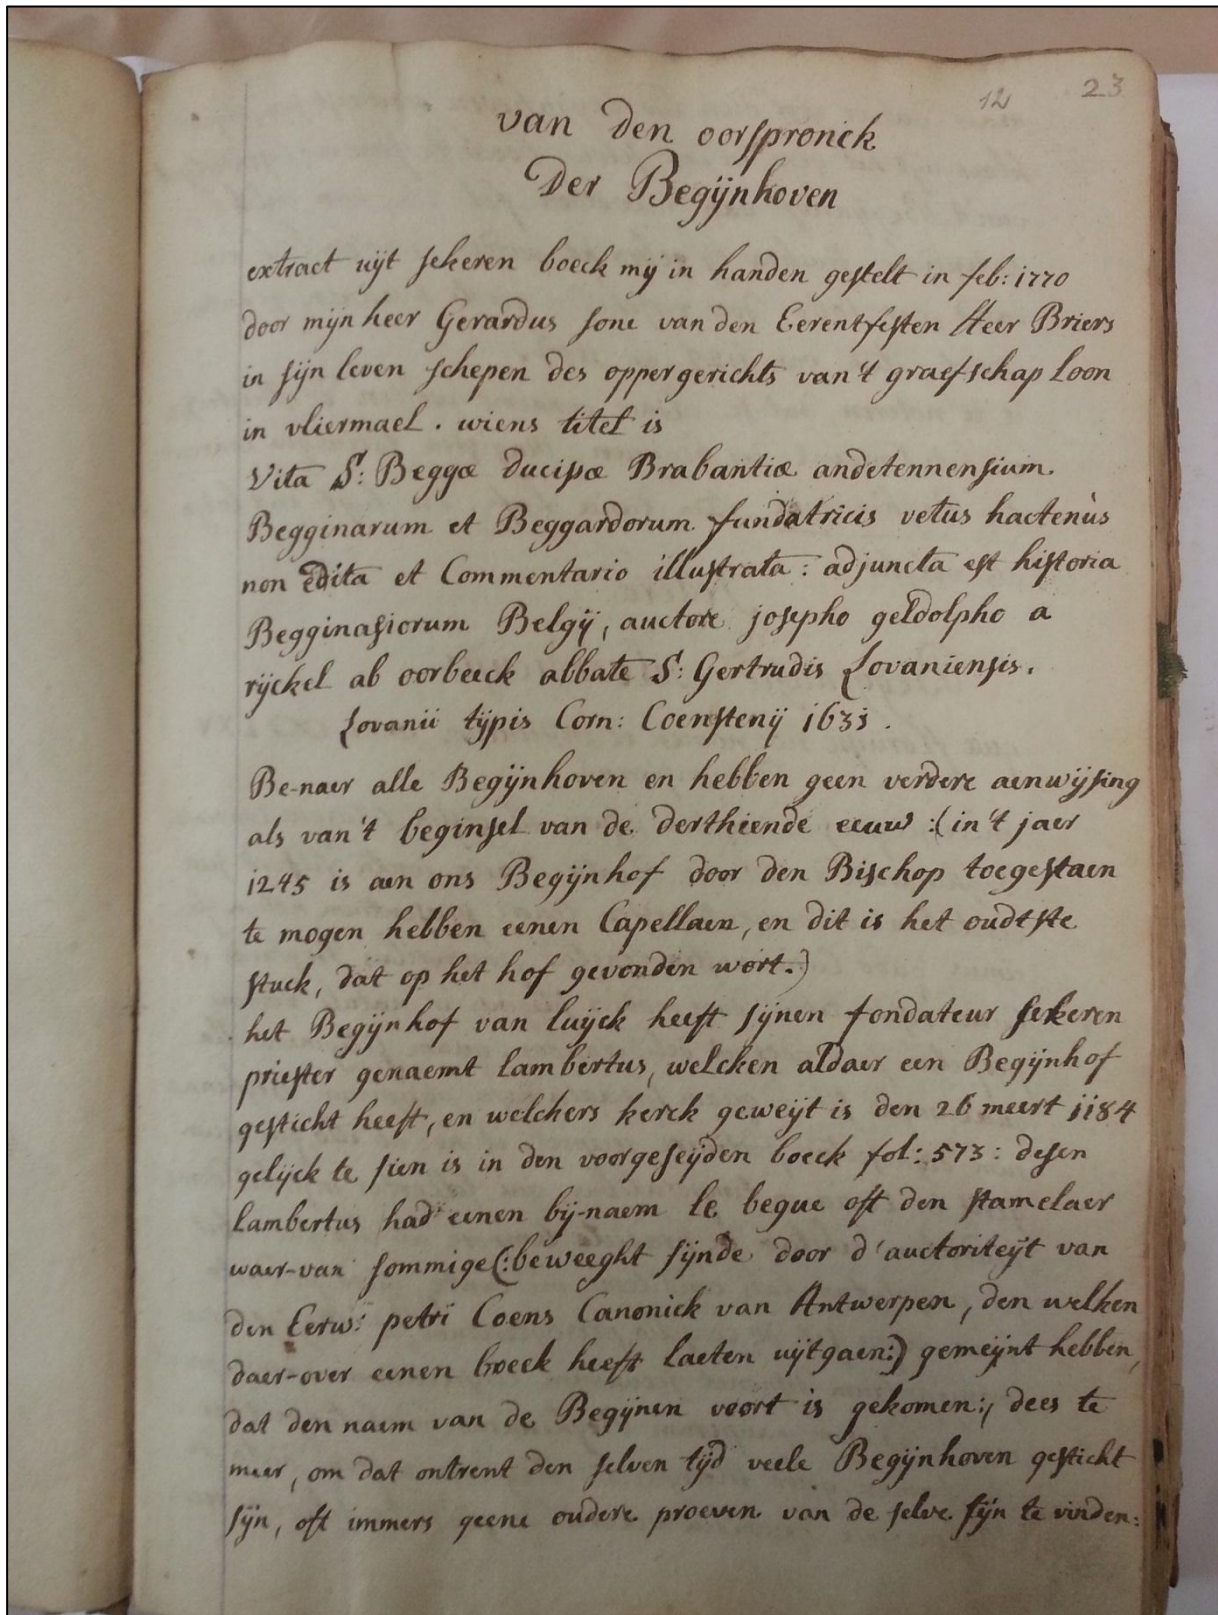 12 23
van den oorspronck
Der Begijnhoven
extract uijt sekeren boeck mij in handen gestelt in feb: 1770
door mijn heer Gerardus sone van den Eerentfesten Heer Briers
in sijn leven schepen des oppergerichts van't graefschap Loon
in vliermael. wiens titel is
Vita S: Beggæ Ducisæ Brabantiæ andetennensium
Begginarum et Beggardorum fundatricis vetus hactenùs
non edita et Commentario illustrata: adjuncta est historia
Begginasiorum Belgij, auctore josepho geldolpho a
rijckel ab oorbeeck abbate S: Gertrudis Lovaniensis.
Lovanii tijpis Corn: Coenstenij 1631.
Be-naer alle Begijnhoven en hebben geen verdere aenwijsing
als van't beginsel van de derthiende eeuw :(in't jaer
1245 is aen ons Begijnhof door den Bischop toegestaen
te mogen hebben eenen Capellaen, en dit is het oudtste
stuck, dat op het hof gevonden wort.)
het Begijnhof van luijck heeft sijnen fondateur sekeren
priester genaemt lambertus, welcken aldaer een Begijnhof
gesticht heeft, en welckers kerck geweijt is den 26 meert 1184
gelijck te sien is in den voorgeseijden boeck fol: 573: desen
lambertus had eenen bij-naem le begue oft den stamelaer
waer-van sommige(:beweeght sijnde door d'auctoriteijt van
den Eerw: petri Coens Canonick van Antwerpen, den welken
daer-over eenen boeck heeft laeten uijtgaen:) gemeijnt hebben,
dat den naem van de Begijnen voort is gekomen:, dees te
meer, om dat ontrent den selven tijd veele Begijnhoven gesticht
sijn, oft immers geene oudere proeven van de selve sijn te vinden: